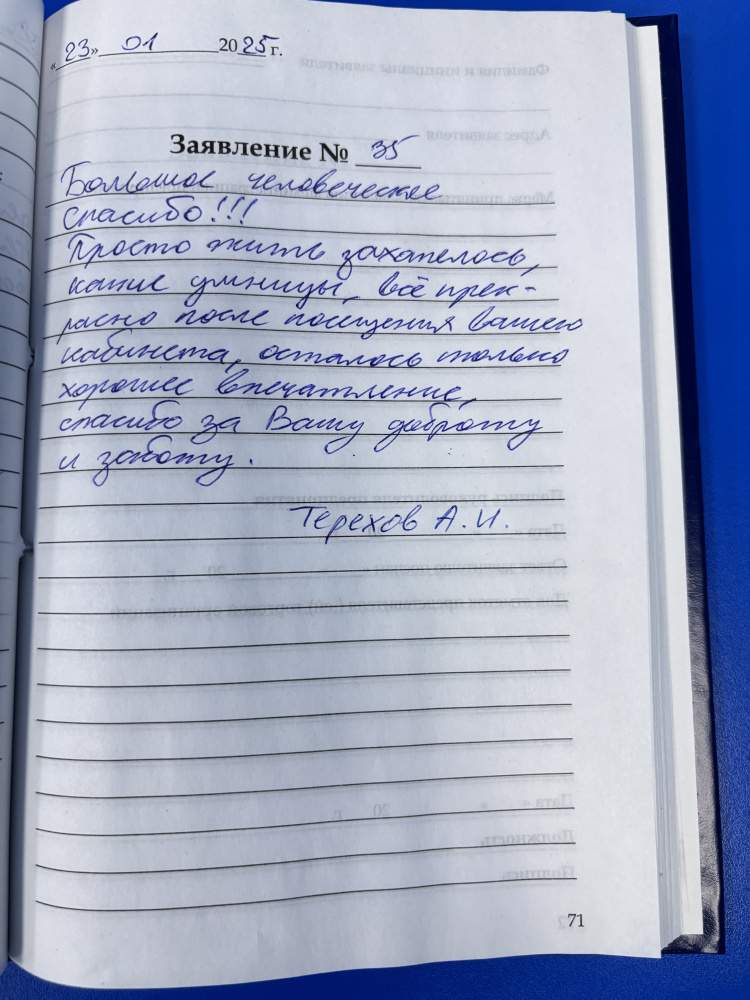 «23» 01 2025 г.
Заявление № 35
Большое человеческое
спасибо!!!
Просто жить захателось,
какие умницы, всё прек-
расно после посещения вашего
кабинета, осталось только
хорошее впечатление,
спасибо за Вашу доброту
и заботу.
Терехов А.И.
71